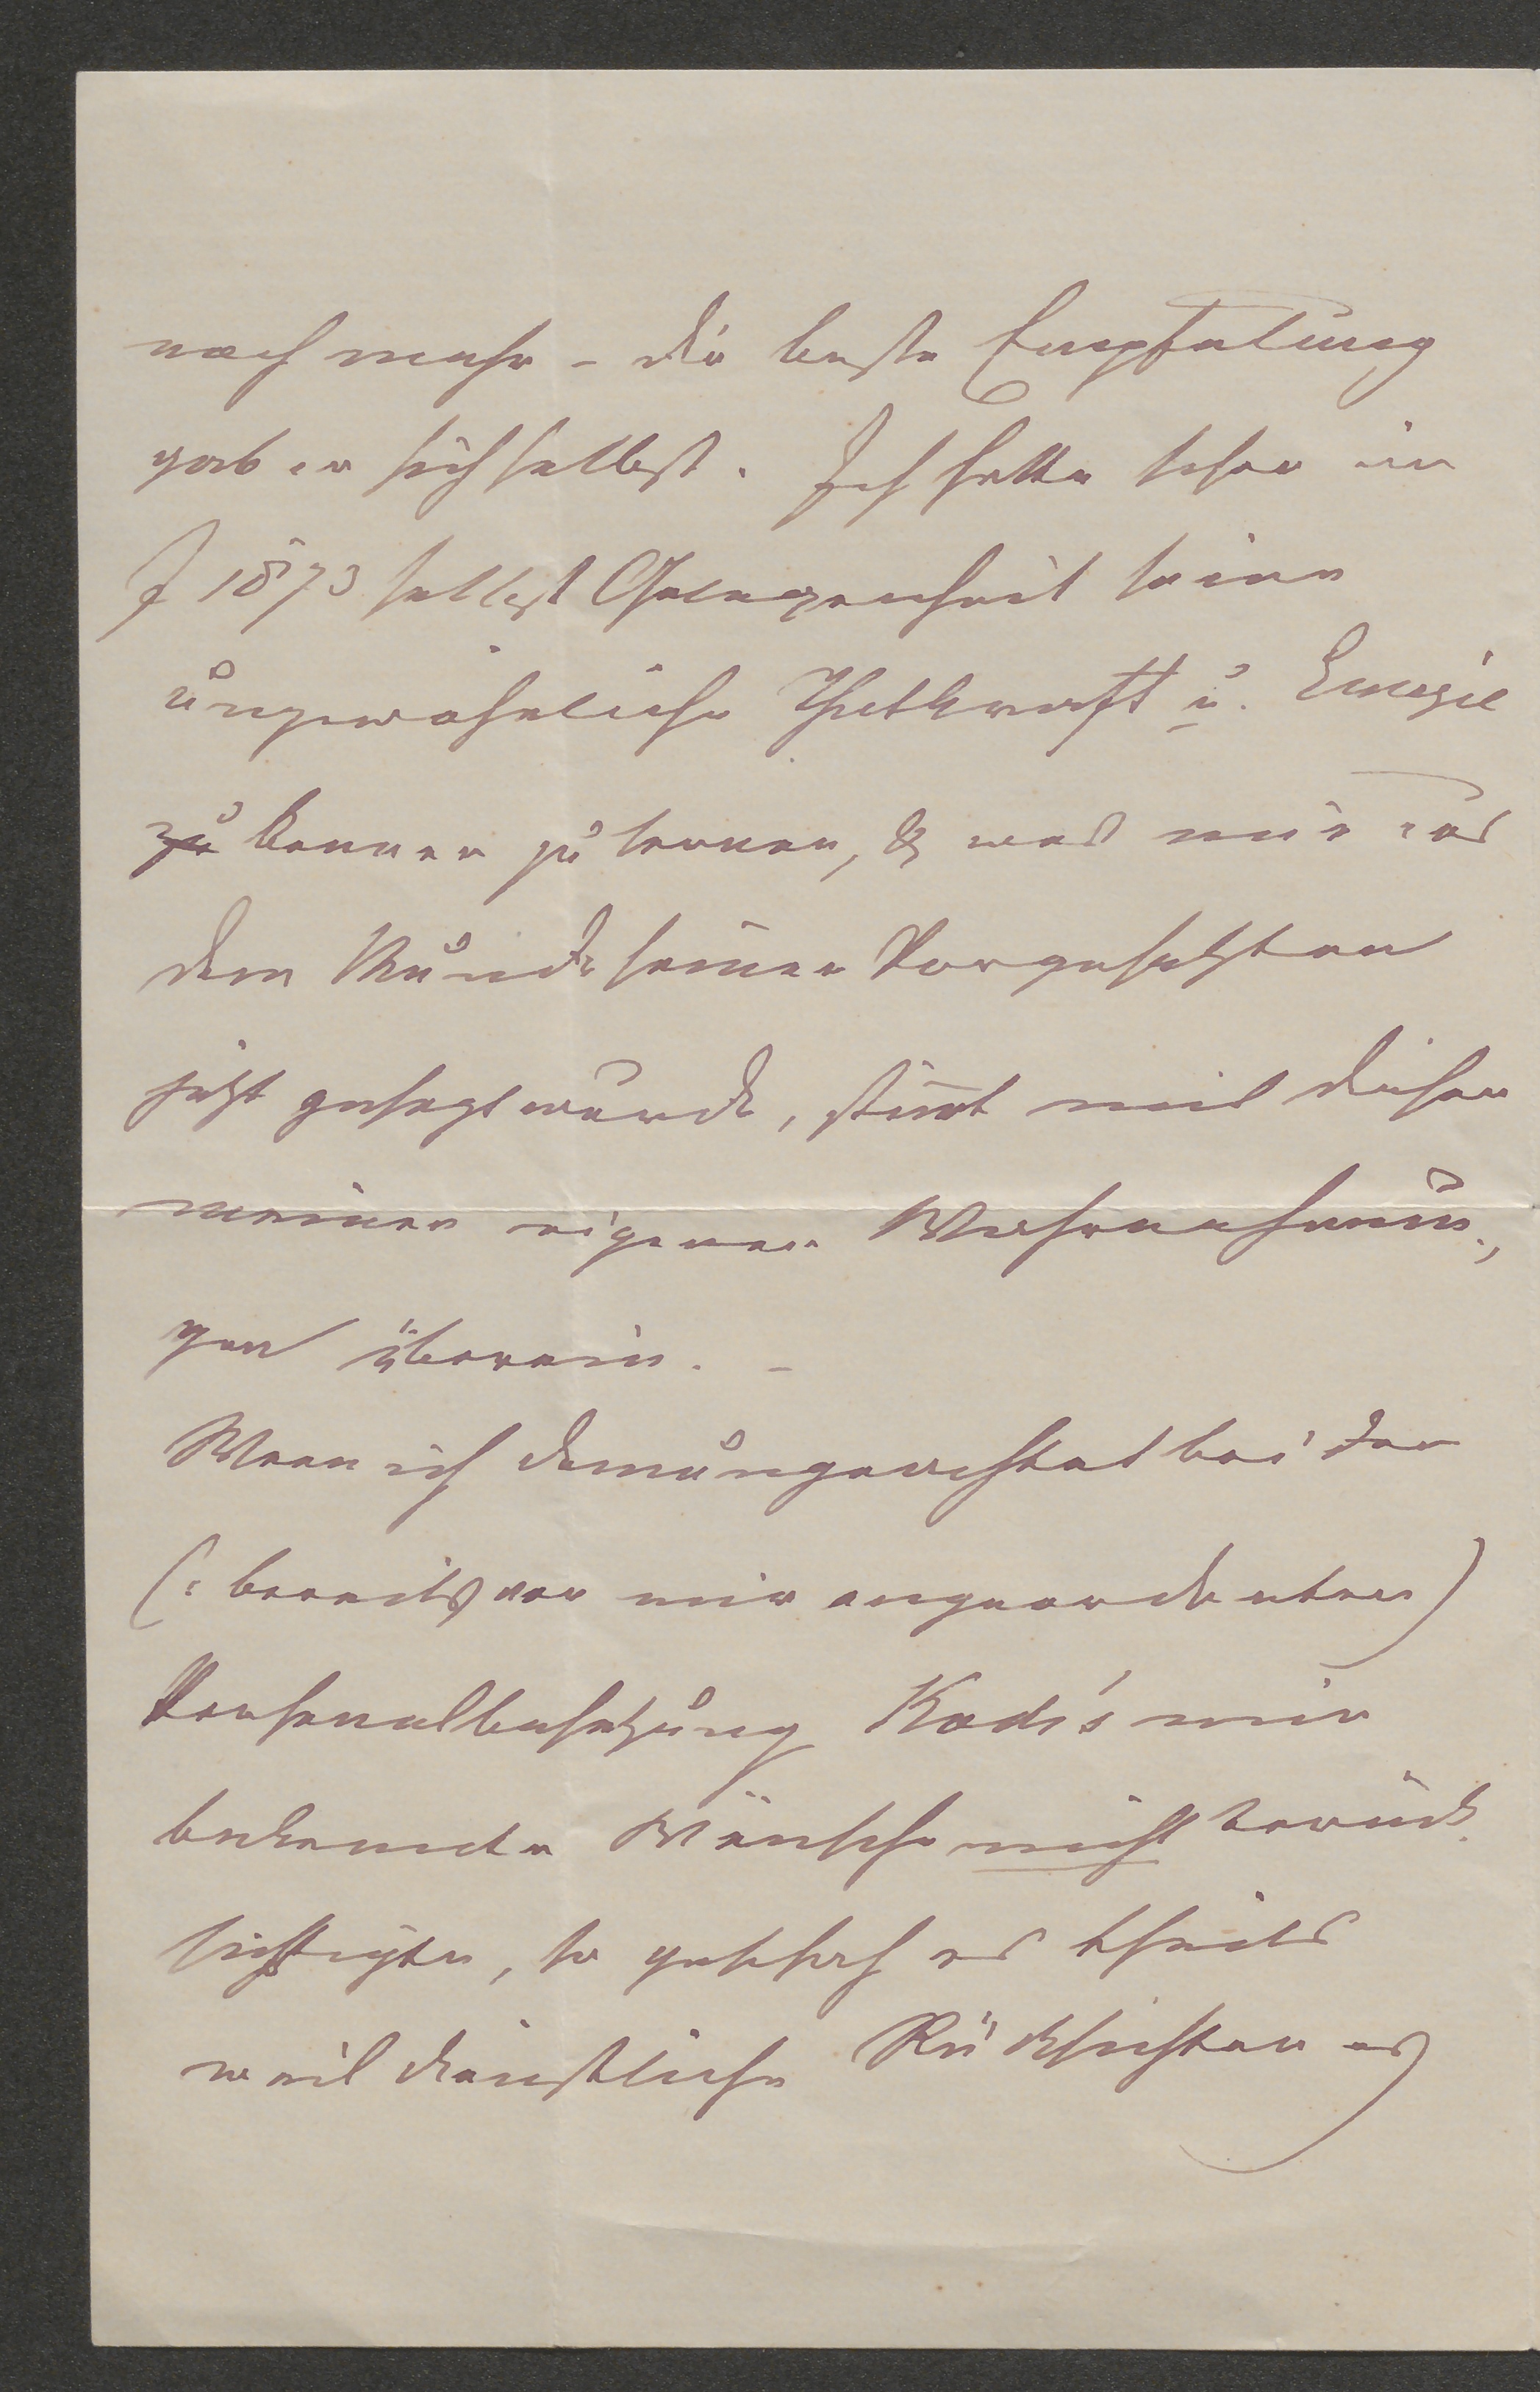 noch mehr – die beste Empfelung
gab er sich selbst. Ich hatte schon im
J 1873 selbst Gelegenheit seine
ungewöhnliche Thatkraft u. Energie
zu kennen zu lernen, & was mir aus
dem Munde seiner Vorgesetzten
jetzt gesagt wurde, stimt mit diesen
meinen eigenen Wahrnehmun-
gen überein. –
Wenn ich demungeachtet bei der
(: bereits von mir angeordneten)
Personalbesetzung Kodis mir
bekannte Wünsche nicht berück-
sichtigte, so geschah es theils
weil dienstliche Rücksichten es